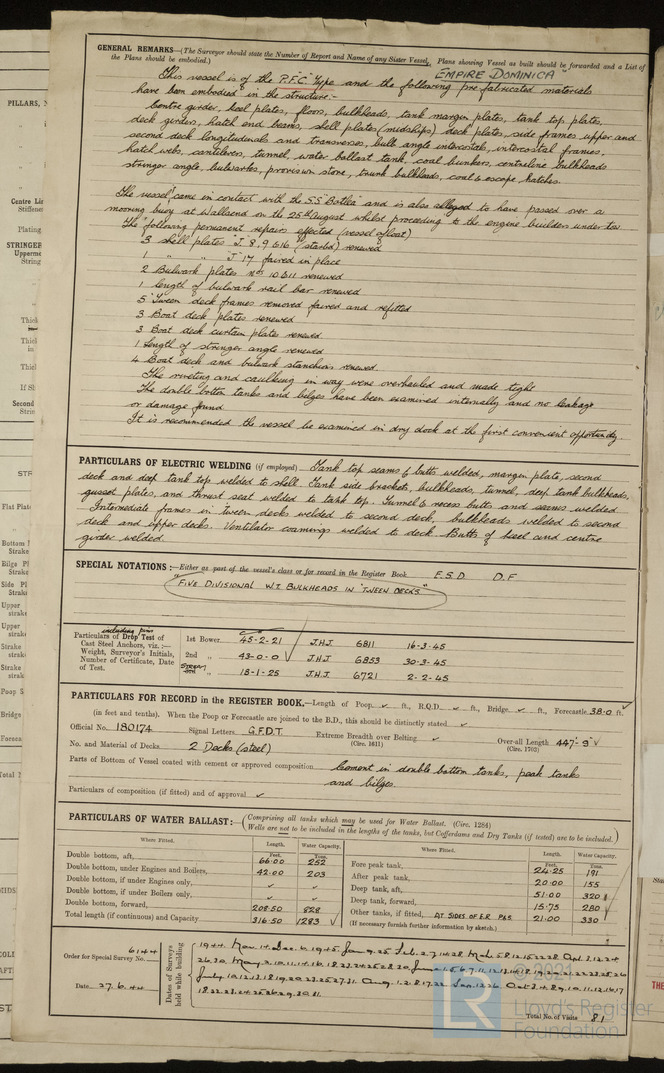 GENERAL REMARKS—(The Surveyor should state the Number of Report and Name of any Sister Vessel. Plans showing Vessel as built should be forwarded and a List of
the Plans should be embodied.)
"EMPIRE DOMINICA"
This vessel is of the "P.F.C." Type and the following pre fabricated materials
have been embodied in the structure:-
Centre girder, keel plates, floors, bulkheads, tank margin plates, tank top plates,
deck girders, hatch end beams, shell plates (midships) deck plates, side frames upper and
second deck longitudinals and transverses, bulb angle intercostals, intercostal frames,
hatch webs, cantilevers, tunnel, water ballast tank, coal bunkers, centreline bulkheads
stringer angle, bulwarks, provision store, trunk bulkheads, coal & escape hatches.
The vessel came in contact with the S.S. and is also alleged to have passed over a
mooring buoy at Wallsend on the 25th August whilst proceeding to the engine builders under tow.
The following permanent repairs effected (vessel afloat)
3 shell plates J. 8, 9 & 16 (starbd) renewed
1 " " J 17 faired in place
2 Bulwark plates nos 10 & 11 renewed
1 length of bulwark rail bar renewed
5 'Tween deck frames removed faired and refitted
3 Boat deck plates renewed
3 Boat deck curtain plate renewed
1 Length of stringer angle renewed
4 Boat deck and bulwark stanchions renewed.
The riveting and caulking in way were overhauled and made tight
The double bottom tanks and bilges have been examined internally and no leakage
or damage found.
It is recommended the vessel be examined in dry dock at the first convenient opportunity.
PARTICULARS OF ELECTRIC WELDING (if employed) Tank top seams & butts welded, margin plate, second
deck and deep tank top welded to shell. Tank side brackets, bulkheads, tunnel, deep tank bulkheads,
gusset plates, and thrust seat welded to tank top. Tunnel & recess butts and seams welded
Intermediate frames in tween decks welded to second deck, bulkheads welded to second
deck and upper decks. Ventilator coamings welded to deck. Butts of keel and centre
girder welded.
SPECIAL NOTATIONS:—Either as part of the vessel's class or for record in the Register Book E.S.D D.F
"FIVE DIVISIONAL W.T BULKHEADS IN 'TWEEN DECKS"
including pins
Particulars of Drop Test of
Cast Steel Anchors, viz.:—
Weight, Surveyor's Initials,
Number of Certificate, Date
of Test.
1st Bower 45-2-21 J.H.J. 6811 16-3-45
2nd " 43-0-0 J.H.J. 6853 30-3-45
Stream " 18-1-25 J.H.J 6721 2-2-45
PARTICULARS FOR RECORD in the REGISTER BOOK.—Length of Poop ✓ ft., R.Q.D. ✓ ft., Bridge ✓ ft., Forecastle 38.0 ft.
(in feet and tenths). When the Poop or Forecastle are joined to the B.D., this should be distinctly stated ✓
Official No. 180174 Signal Letters G.F.D.T. Extreme Breadth over Belting ✓ (Circ. 1611) Over-all Length 447'-9" (Circ. 1703)
No. and Material of Decks 2 Decks (steel)
Parts of Bottom of Vessel coated with cement or approved composition Cement in double bottom tanks, peak tanks
and bilges.
Particulars of composition (if fitted) and of approval ✓
PARTICULARS OF WATER BALLAST:—(Comprising all tanks which may be used for Water Ballast. (Circ. 1284)
Wells are not to be included in the lengths of the tanks, but Cofferdams and Dry Tanks (if tested) are to be included.)
Where Fitted. Length. Water Capacity.
Feet. Tons.
Double bottom, aft, 66.00 252
Double bottom, under Engines and Boilers, 42.00 203
Double bottom, if under Engines only, ✓ ✓
Double bottom, if under Boilers only, ✓ ✓
Double bottom, forward, 208.50 828
Total length (if continuous) and Capacity 316.50 1283 ✓
Where Fitted. Length. Water Capacity.
Feet. Tons.
Fore peak tank, 24.25 191
After peak tank, 20.00 155
Deep tank, aft, 51.00 320
Deep tank, forward, 15.75 280
Other tanks, if fitted, AT SIDES OF E.R P&S 21.00 330
(If necessary furnish further information by sketch.)
Order for Special Survey No. 6144
Date 27.6.44
Dates of Surveys
held while building
Total No. of Visits 81
© 2021
LR
Lloyd's Register
Foundation